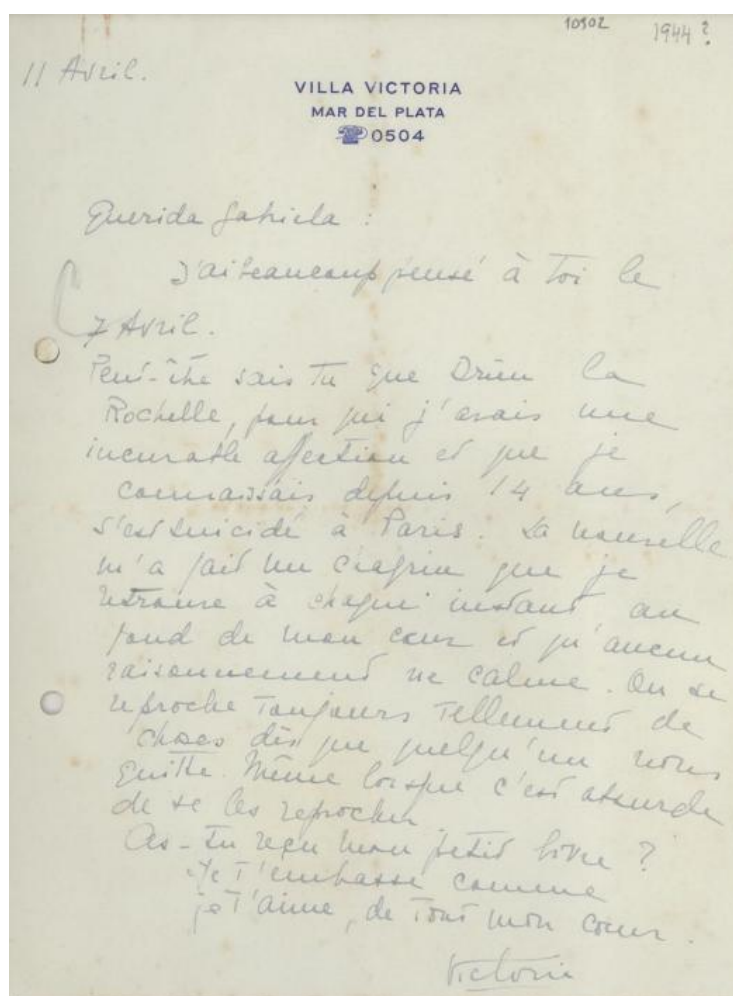 10902
1944?
11 Avril.
VILLA VICTORIA
MAR DEL PLATA
0504
Querida Gabriela :
J'ai beaucoup pensé à toi le
7 Avril.
Peut-être sais tu que Drieu la
Rochelle, pour qui j'avais une
incurable affection et que je
connaissais depuis 14 ans,
s'est suicidé à Paris. La nouvelle
m'a fait un chagrin que je
retrouve à chaque instant au
fond de mon cœur et qu'aucun
raisonnement ne calme. On se
reproche toujours tellement de
choses dès que quelqu'un nous
quitte. Même lorsque c'est absurde
de se les reprocher.
As-tu reçu mon petit livre ?
Je t'embrasse comme
je t'aime, de tout mon cœur.
Victoria